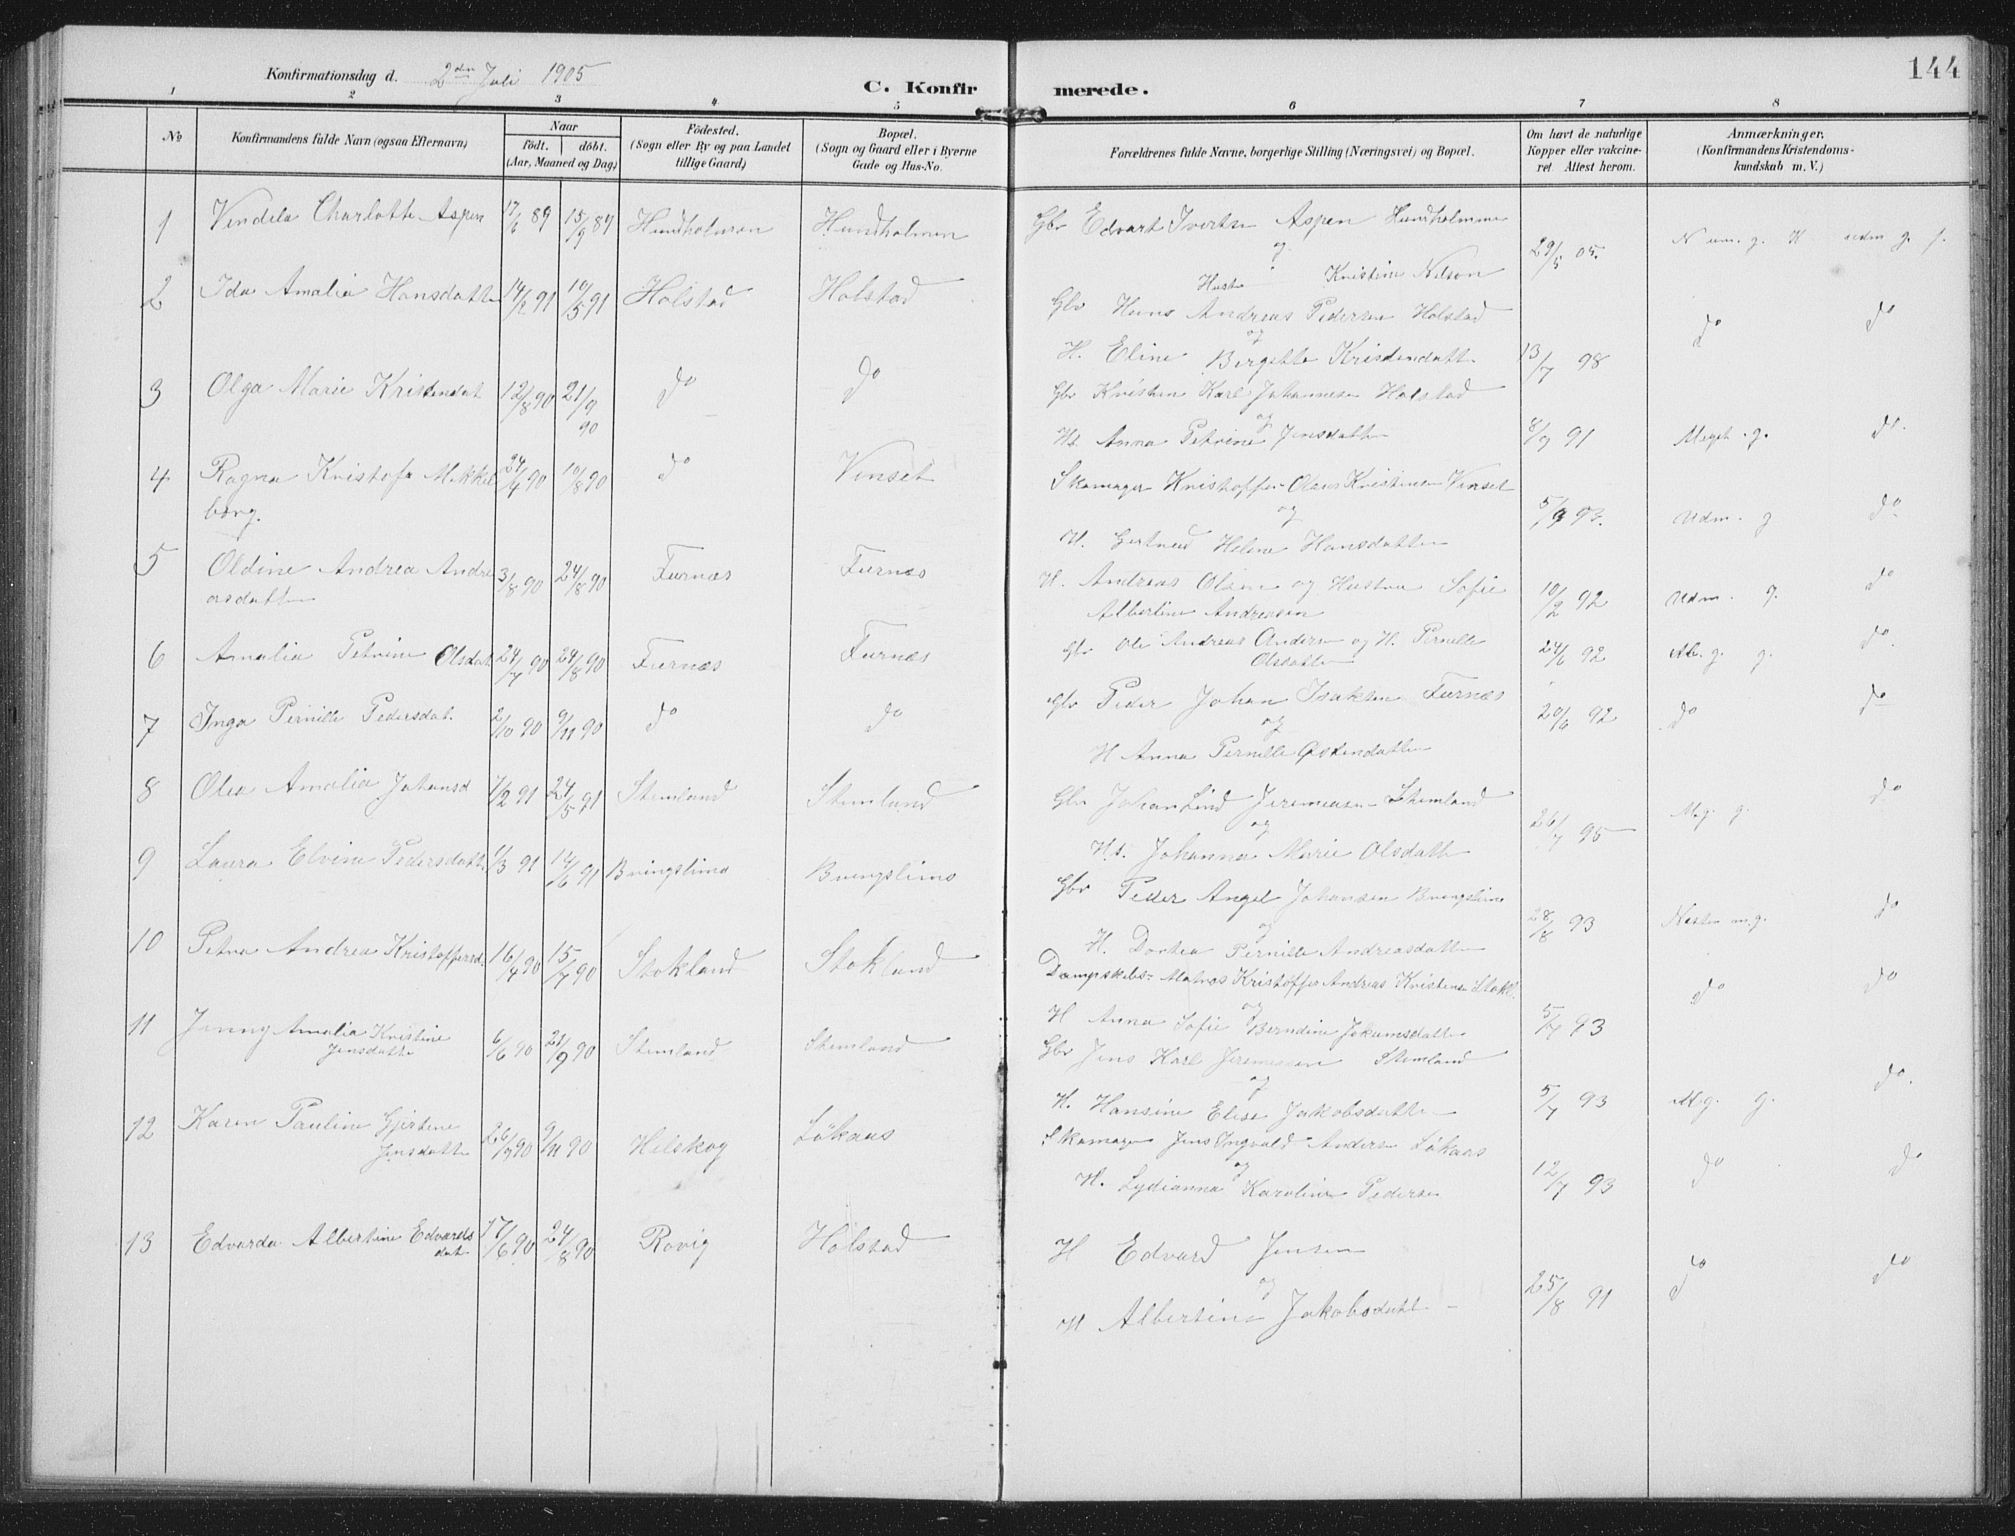 144
Konfirmationsdag d. 2den Juli 1905
C. Konfirmerede.
1 2 3 4 5 6 7 8
No
Konfirmandens fulde Navn (ogsaa Efternavn)
Naar
födt. döbt.
(Aar, Maaned og Dag)
Födested.
(Sogn eller By og paa Landet
tillige Gaard)
Bopæl.
(Sogn og Gaard eller i Byerne
Gade og Hus-No.
Forældrenes fulde Navne, borgerlige Stilling (Næringsvei) og Bopæl.
Om havt de naturlige
Kopper eller vakcine-
ret. Attest herom.
Anmærkninger.
(Konfirmandens Kristendoms-
kundskab m. V.)
1 Vendela Charlotte Aspen 17/6 89 15/9 89 Hundholmen Hundholmen Gbr Edvart Ivertsn Aspen Hundholmen
og
Hustr Kristine Nilson 29/5 05.
2 Ida Amalia Hansdatte 14/2 91 10/5 91 Holstad Holstad Gbr Hans Andreas Pedersen Holstad
og
H. Eline Bergitte Kristendatt 13/7 98 do do
3 Olga Marie Kristendat 12/8 90 21/9 90 do do Gbr Kristen Karl Johannesen Holstad
og
H. Anna Petrine Jensdatte 8/7 91 Meget. g. do.
4 Ragna Kristofa Mikkel
borg. 24/4 90 10/8 90 do Vinset Skomager Kristoffer Olaus Kristensen Vinset
og
H. Gertrud Helene Hansdatte 5/9 93. Udm. g do
5 Oldine Andrea Andre
asdatte 3/8 90 24/8 90 Furnæs Furnæs H. Andreas Olsen og Hustru Sofie
Albertine Andreasen 10/2 92 Udm. g. do
6 Amalia Petrine Olsdat 24/7 90 24/8 90 Furnæs Furnæs Gbr Ole Andreas Andersn og H. Pernille
Olsdatte 24/6 92 g. do.
7 Inga Pernille Pedersdat. 2/10 90 9/11 90 do do Gbr Peder Johan Isaksen Furnæs
og
H Anna Pernille Østendatte 20/6 92 do do
8 Olea Amalia Johansd 1/2 91 24/5 91 Stemland Stemland Gbr Johan Lind Jeremiasen Stemland
og
H. Johanna Marie Olsdatt 26/7 95 Meg. g. do
9 Laura Elvine Pedersdatt 1/3 91 14/6 91 Bringslimo Bringslimo Gbr Peder Angel Johansen Bringslimo
og
H. Dortea Pernille Andreasdatt 28/8 93 Næsten m.g. do
10 Petra Andrea Kristoffersd. 16/4 90 15/7 90 Stokland Stokland Dampskibs-Matros Kristoffer Andreas Kristensn Stokl.
og
H Anna Sofie Berndine Jokumsdatte 5/7 93 do do
11 Jenny Amalia Kristine
Jensdatte 6/6 90 21/9 90 Stemland Stemland Gbr Jens Karl Jeremiasen Stemland
og
H. Hansine Elise Jakobsdatte 5/7 93 M.g. g. do.
12 Karen Pauline Gjertine
Jensdatte 26/9 90 9/11 90 Helskog Lökaas Skomager Jens Ingvald Andersn Lökaas
og
H. Lydianna Karoline Pedersn 12/7 93 do do
13 Edvarda Albertine Edvards
dat 17/6 90 24/8 90 Rovig Holstad H Edvard Jensen
og
H Albertine Jakobsdatt 25/8 91 do do